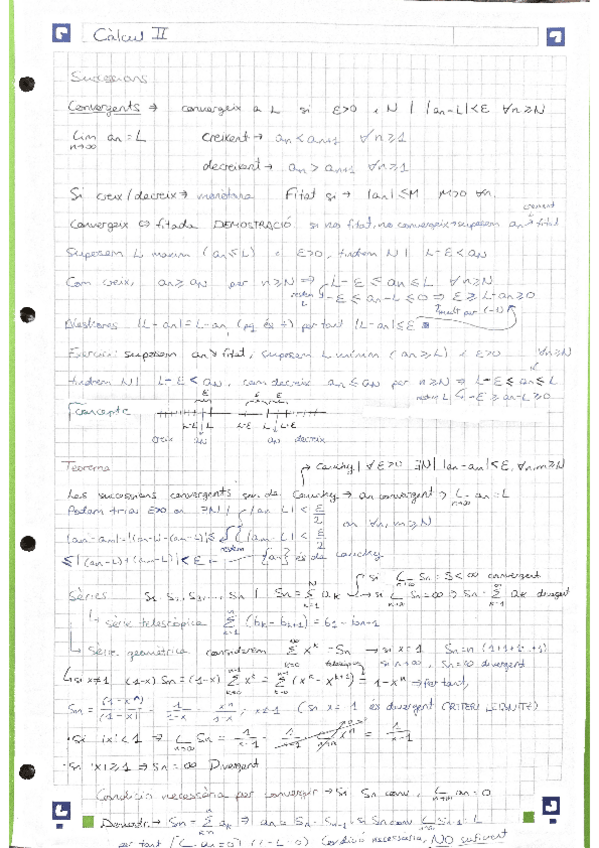 Càlcul II
Successions
Convergents → convergeix a L si ε>0 i N | |an-L|<ε ∀n≥N
lim n→∞ an = L creixent → an < an+1 ∀n≥1
decreixent → an > an+1 ∀n≥1
Si creix/decreix → monòtona Fitat si → |an|≤M M>0 ∀n.
creixent
Convergeix ⇔ fitada DEMOSTRACIÓ si no fitat, no convergeix → suposem an fitat
Suposem L màxim (an ≤ L) i ε>0, tindrem N | L-ε < aN
Com creix, an ≥ aN per n≥N ⇒ L-ε ≤ an ≤ L ∀n≥N
restem L -ε ≤ an-L ≤ 0 ⇒ ε ≥ L-an ≥ 0
mult per (-1)
Aleshores |L-an| = L-an (pq és +) per tant |L-an| ≤ ε
Exercici: suposem an fitat, suposem L mínim (an ≥ L) i ε>0 ∀n≥N
tindrem N | L-ε < aN, com decreix an ≤ aN per n≥N ⇒ L-ε ≤ an ≤ L
-ε ≥ an-L ≥ 0
Concepte
creix aN an decreix
Teorema Cauchy | ∀ε>0 ∃N | |an-am|<ε, ∀n,m≥N
Les successions convergents són de Cauchy → an convergent → L n→∞ an = L
Podem triar ε>0 on ∃N | |an-L| < ε/2
|am-L| < ε/2 on ∀n,m≥N
restem
≤ |(an-L)+(am-L)| < ε {an} és de Cauchy
Sèries S1, S2, S3, ..., Sn | Sn = Σ ak → si L n→∞ Sn = S < ∞ convergent
si L n→∞ Sn = ∞ ⇒ Sn Σ ak divergent
sèrie telescòpica Σ (bk - bk+1) = b1 - bn+1
Sèrie geomètrica considerem Σ x^k = Sn → si x=1 Sn = n (1+1+1..+1)
telescòpica si n→∞, Sn = ∞ divergent
si x≠1 (1-x) Sn = (1-x) Σ x^k = Σ (x^k - x^k+1) = 1-x^n → per tant,
Sn = (1-x^n)/(1-x) = 1/1-x - x^n/1-x, x≠1 (si x=1 és divergent CRITERI LEIBNITZ)
· si |x|<1 ⇒ L n→∞ Sn
· si |x|≥1 ⇒ Sn = ∞ Divergent
Condició necessària per convergir → si Sn conv, L n→∞ an = 0
Demostr. → Sn = Σ ak ⇒ an = Sn - Sn-1 si Sn conv L Sn-1 = L
per tant (L an = 0) (L-L=0) Condició necessària, NO suficient